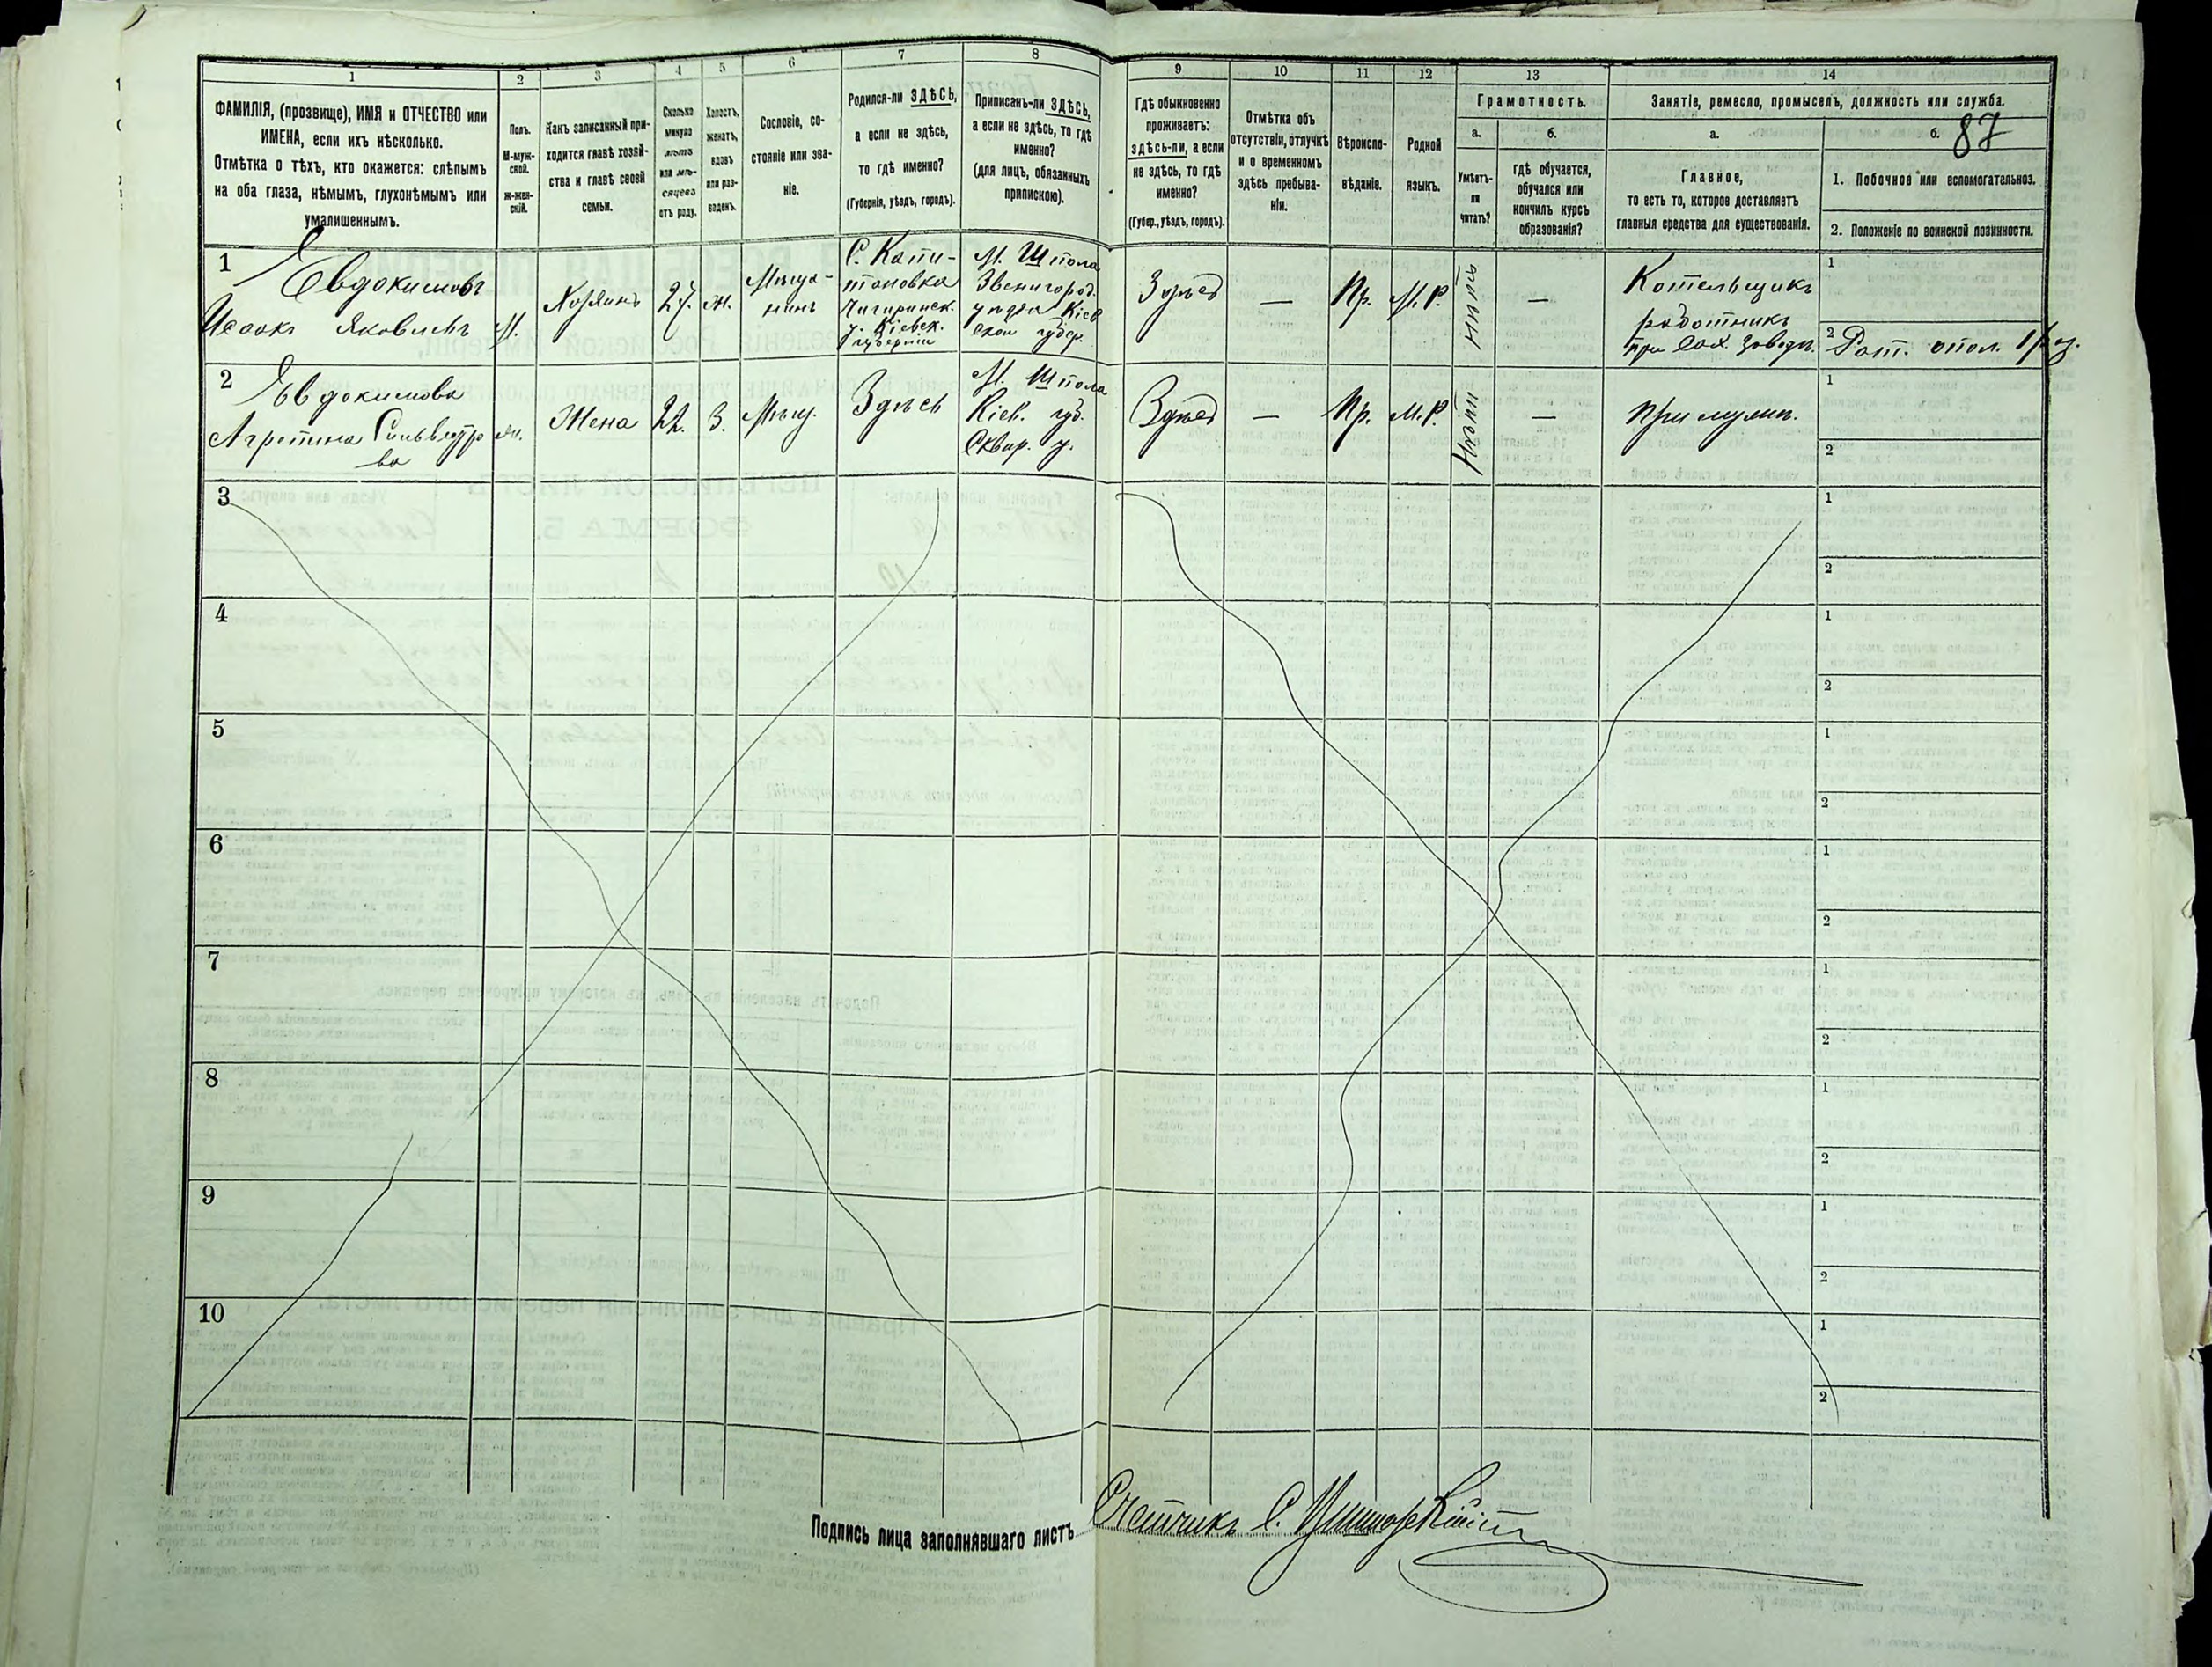 1
2
3
4
5
6
7
8
9
10
11
12
13
14
ФАМИЛІЯ, (прозвище), ИМЯ и ОТЧЕСТВО или
ИМЕНА, если ихъ нѣсколько.
Отмѣтка о тѣхъ, кто окажется: слѣпымъ
на оба глаза, нѣмымъ, глухонѣмымъ или
умалишеннымъ.
Полъ.
М-муж-
ской.
ж-жен-
скій.
Какъ записанный при-
ходится главѣ хозяй-
ства и главѣ своей
семьи.
Сколько
минуло
лѣтъ
или мѣ-
сяцевъ
отъ роду.
Холостъ,
женатъ,
вдовъ
или раз-
веденъ.
Сословіе, со-
стояніе или зва-
ніе.
Родился-ли ЗДѢСЬ,
а если не здѣсь,
то гдѣ именно?
(Губернія, уѣздъ, городъ).
Приписанъ-ли ЗДѢСЬ,
а если не здѣсь, то гдѣ
именно?
(для лицъ, обязанныхъ
припискою).
Гдѣ обыкновенно
проживаетъ:
здѣсь-ли, а если
не здѣсь, то гдѣ
именно?
(Губер., уѣздъ, городъ).
Отмѣтка объ
отсутствіи, отлучкѣ
и о временномъ
здѣсь пребыва-
ніи.
Вѣроиспо-
вѣданіе.
Родной
языкъ.
Грамотность.
а.
б.
Умѣетъ-
ли
читать?
гдѣ обучается,
обучался или
кончилъ курсъ
образованія?
Занятіе, ремесло, промыселъ, должность или служба.
а.
б.
87
Главное,
то есть то, которое доставляетъ
главныя средства для существованія.
1. Побочное или вспомогательное.
2. Положеніе по воинской повинности.
1
Евдокимовъ
Исаакъ Яковлевъ
М.
Хозяинъ
27.
Ж.
Мѣща-
нинъ
С. Капи-
тановка
Чигиринск.
у. Кіевск.
губерніи
М. Шпола
Звенигород.
уѣзда Кіев
ской губер.
Здѣсь
—
Пр.
М. Р.
Нѣтъ
—
Котельщикъ
работникъ
при Сах. заводѣ.
1
2
Рат. опол. 1 раз.
2
Евдокимова
Агрепина Сильвестро
ва
Ж.
Жена
22.
З.
Мѣщ.
Здѣсь
М. Шпола
Кіев. губ.
Сквир. у.
Здѣсь
—
Пр.
М. Р.
Нѣтъ
—
При мужѣ.
1
2
3
1
2
4
1
2
5
1
2
6
1
2
7
1
2
8
1
2
9
1
2
10
1
2
Подпись лица заполнявшаго листъ
Счетчикъ С.